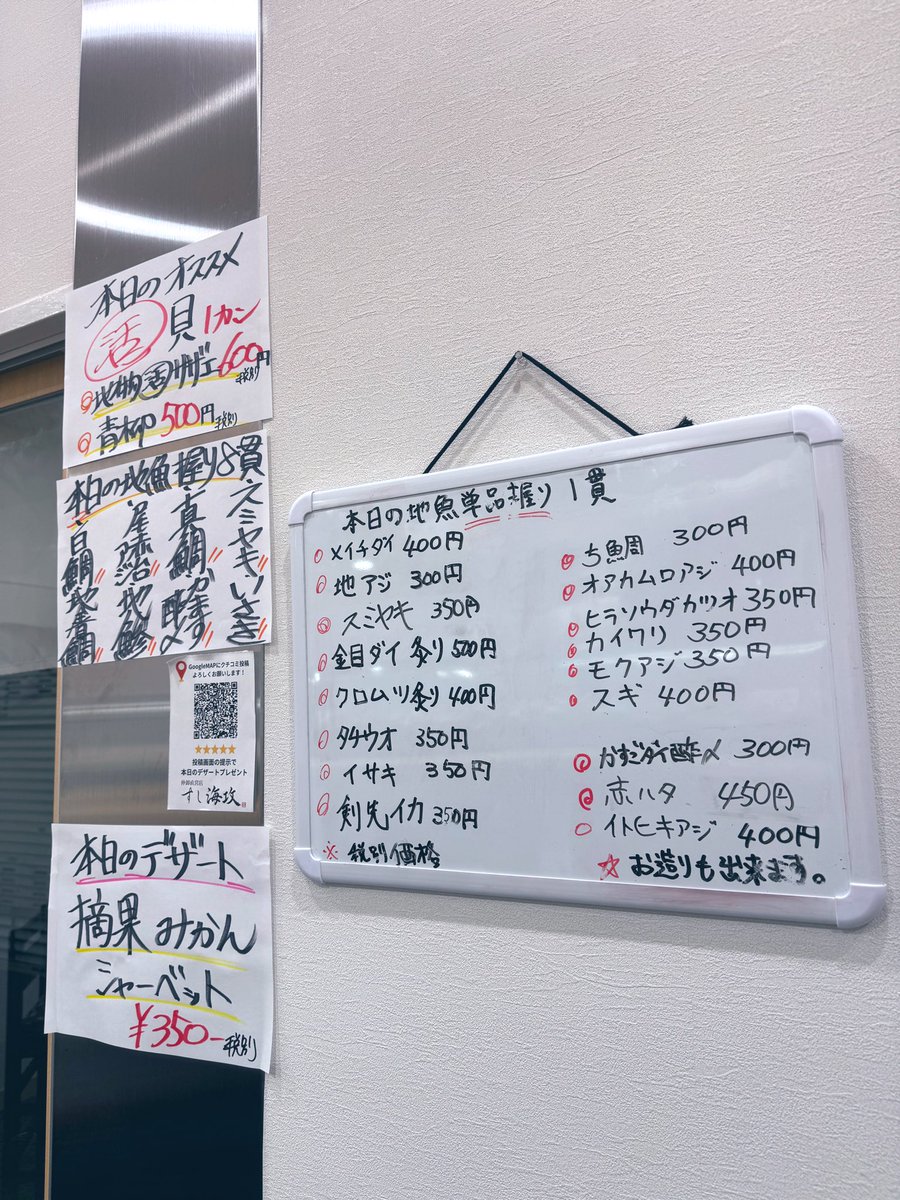 本日のオススメ
活 貝 1カン
地物活サザエ 600円 税別
青柳 500円 税別
本日の地魚握り8貫
スミヤキ、いさき
真鯛、かます酢〆
尾赤沼、地鯵
目鯛、地金目鯛
GoogleMAPにクチコミ投稿
よろしくお願いします！
★★★★★
投稿画面の提示で
本日のデザートプレゼント
仲卸直営店
すし海攻
本日のデザート
摘果みかん
シャーベット
¥350- 税別
本日の地魚単品握り 1貫
メイチダイ 400円
地アジ 300円
スミヤキ 350円
金目ダイ炙り 500円
クロムツ炙り 400円
タチウオ 350円
イサキ 350円
剣先イカ 350円
※ 税別価格
ち鯛 300円
オアカムロアジ 400円
ヒラソウダガツオ 350円
カイワリ 350円
モクアジ 350円
スギ 400円
かすごダイ酢〆 300円
赤ハタ 450円
イトヒキアジ 400円
☆ お造りも出来ます。